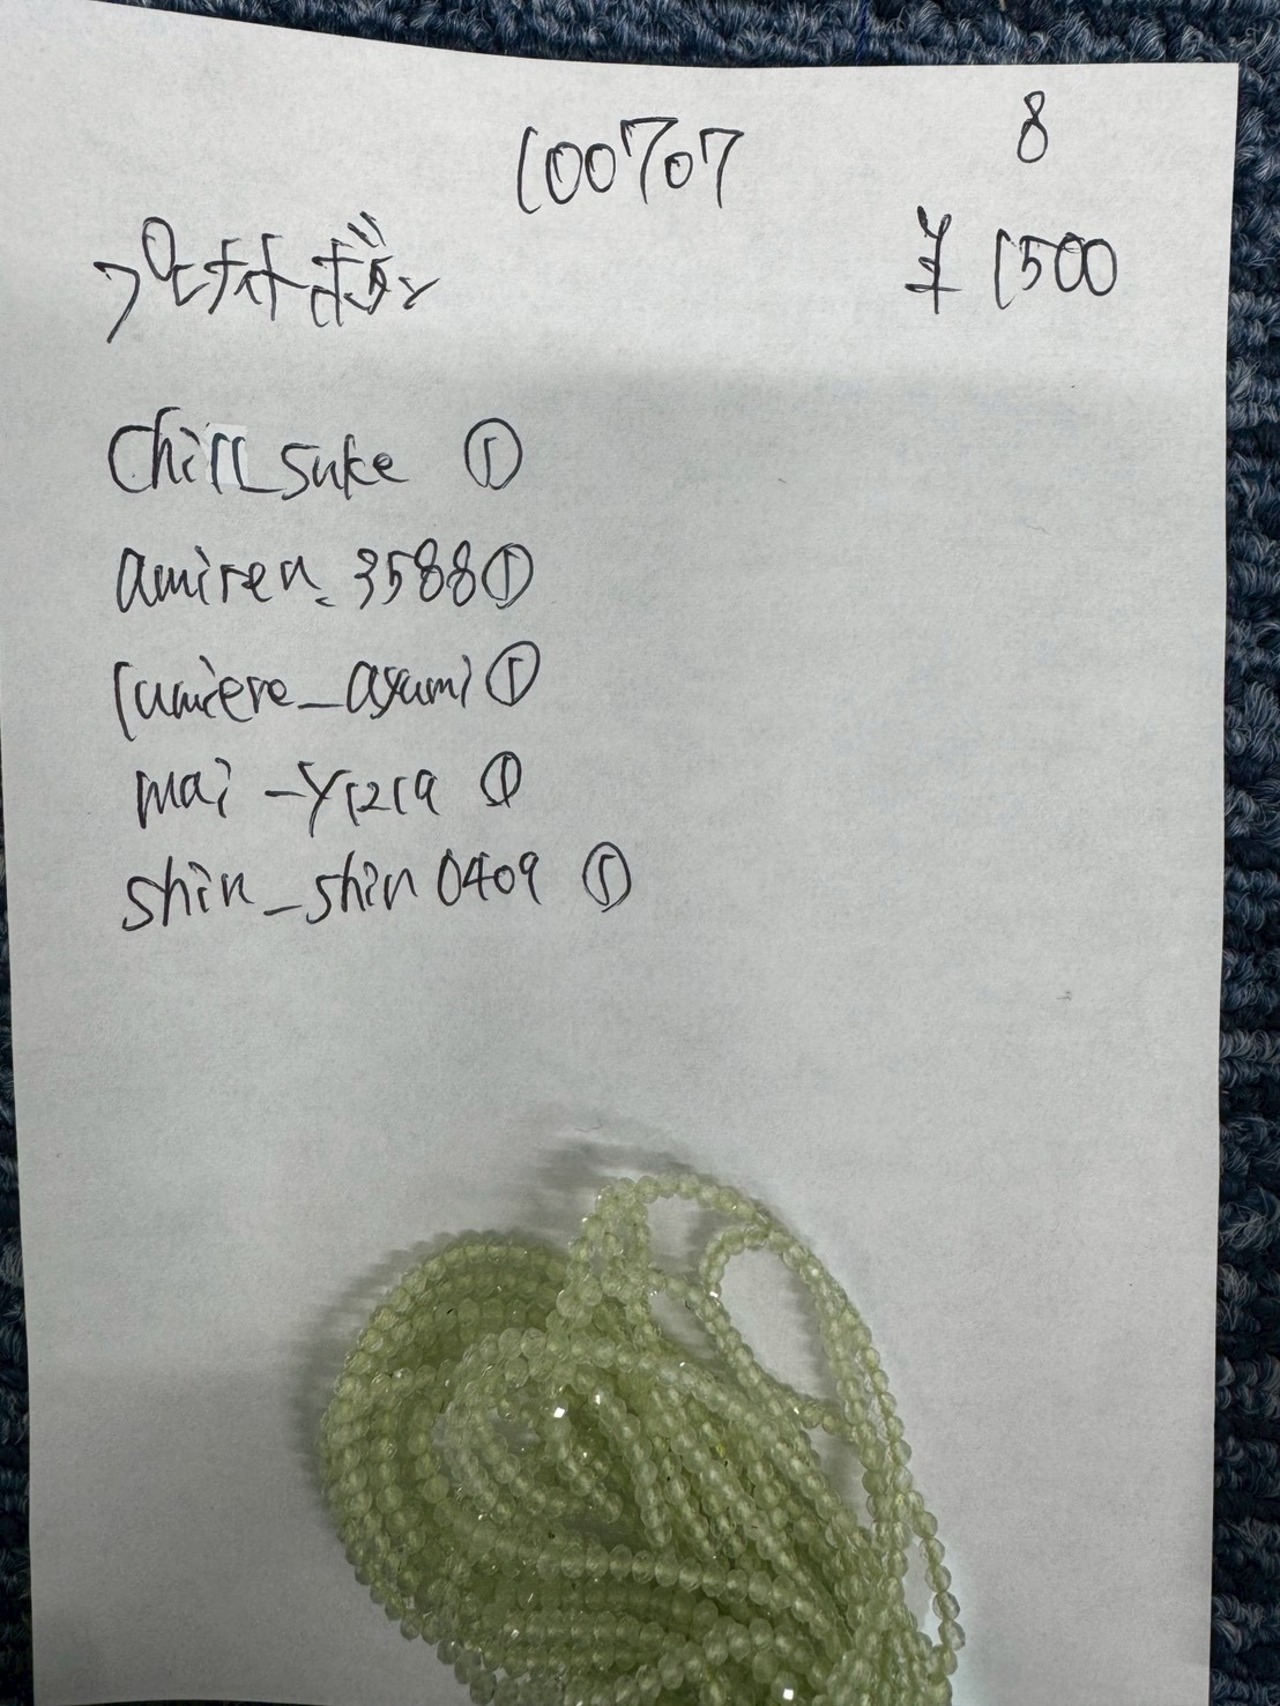 8
100707
プレナイトボタン
¥1500
Chill_suke ①
amiren_3588①
lumiere_asami①
mai_y1219 ①
shin_shin0409 ①